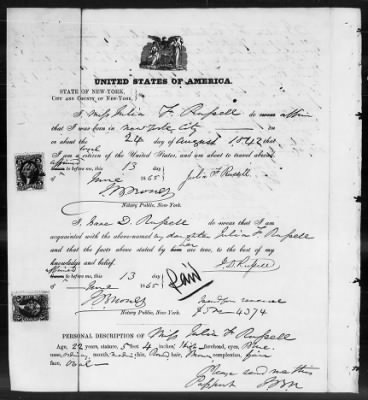 UNITED STATES OF AMERICA.
STATE OF NEW-YORK,
CITY AND COUNTY OF NEW-YORK.
I, Miss Julia F Russell do swear affirm
that I was born in New York City on
or about the 24 day of August 1842 that
I am a citizen of the United States, and am about to travel abroad.
Affirmed to before me, this 13 day
of June 1865 Julia F Russell
Notary Public, New York.
I, Isaac D. Russell do swear that I am
acquainted with the above-named my daughter Julia F Russell
and that the facts above stated by her are true, to the best of my
knowledge and belief. I. D. Russell
affirmed to before me, this 13 day
of June 1865 Paid
Notary Public, New York.
No 4374
PERSONAL DESCRIPTION OF Miss Julia F Russell
Age, 22 years, stature, 5 feet 4 inches, High forehead, eyes, Blue
nose, ordinary, mouth, medium, chin, Round hair, Brown, complexion, fair
face, Oval
Please send me this
Passport